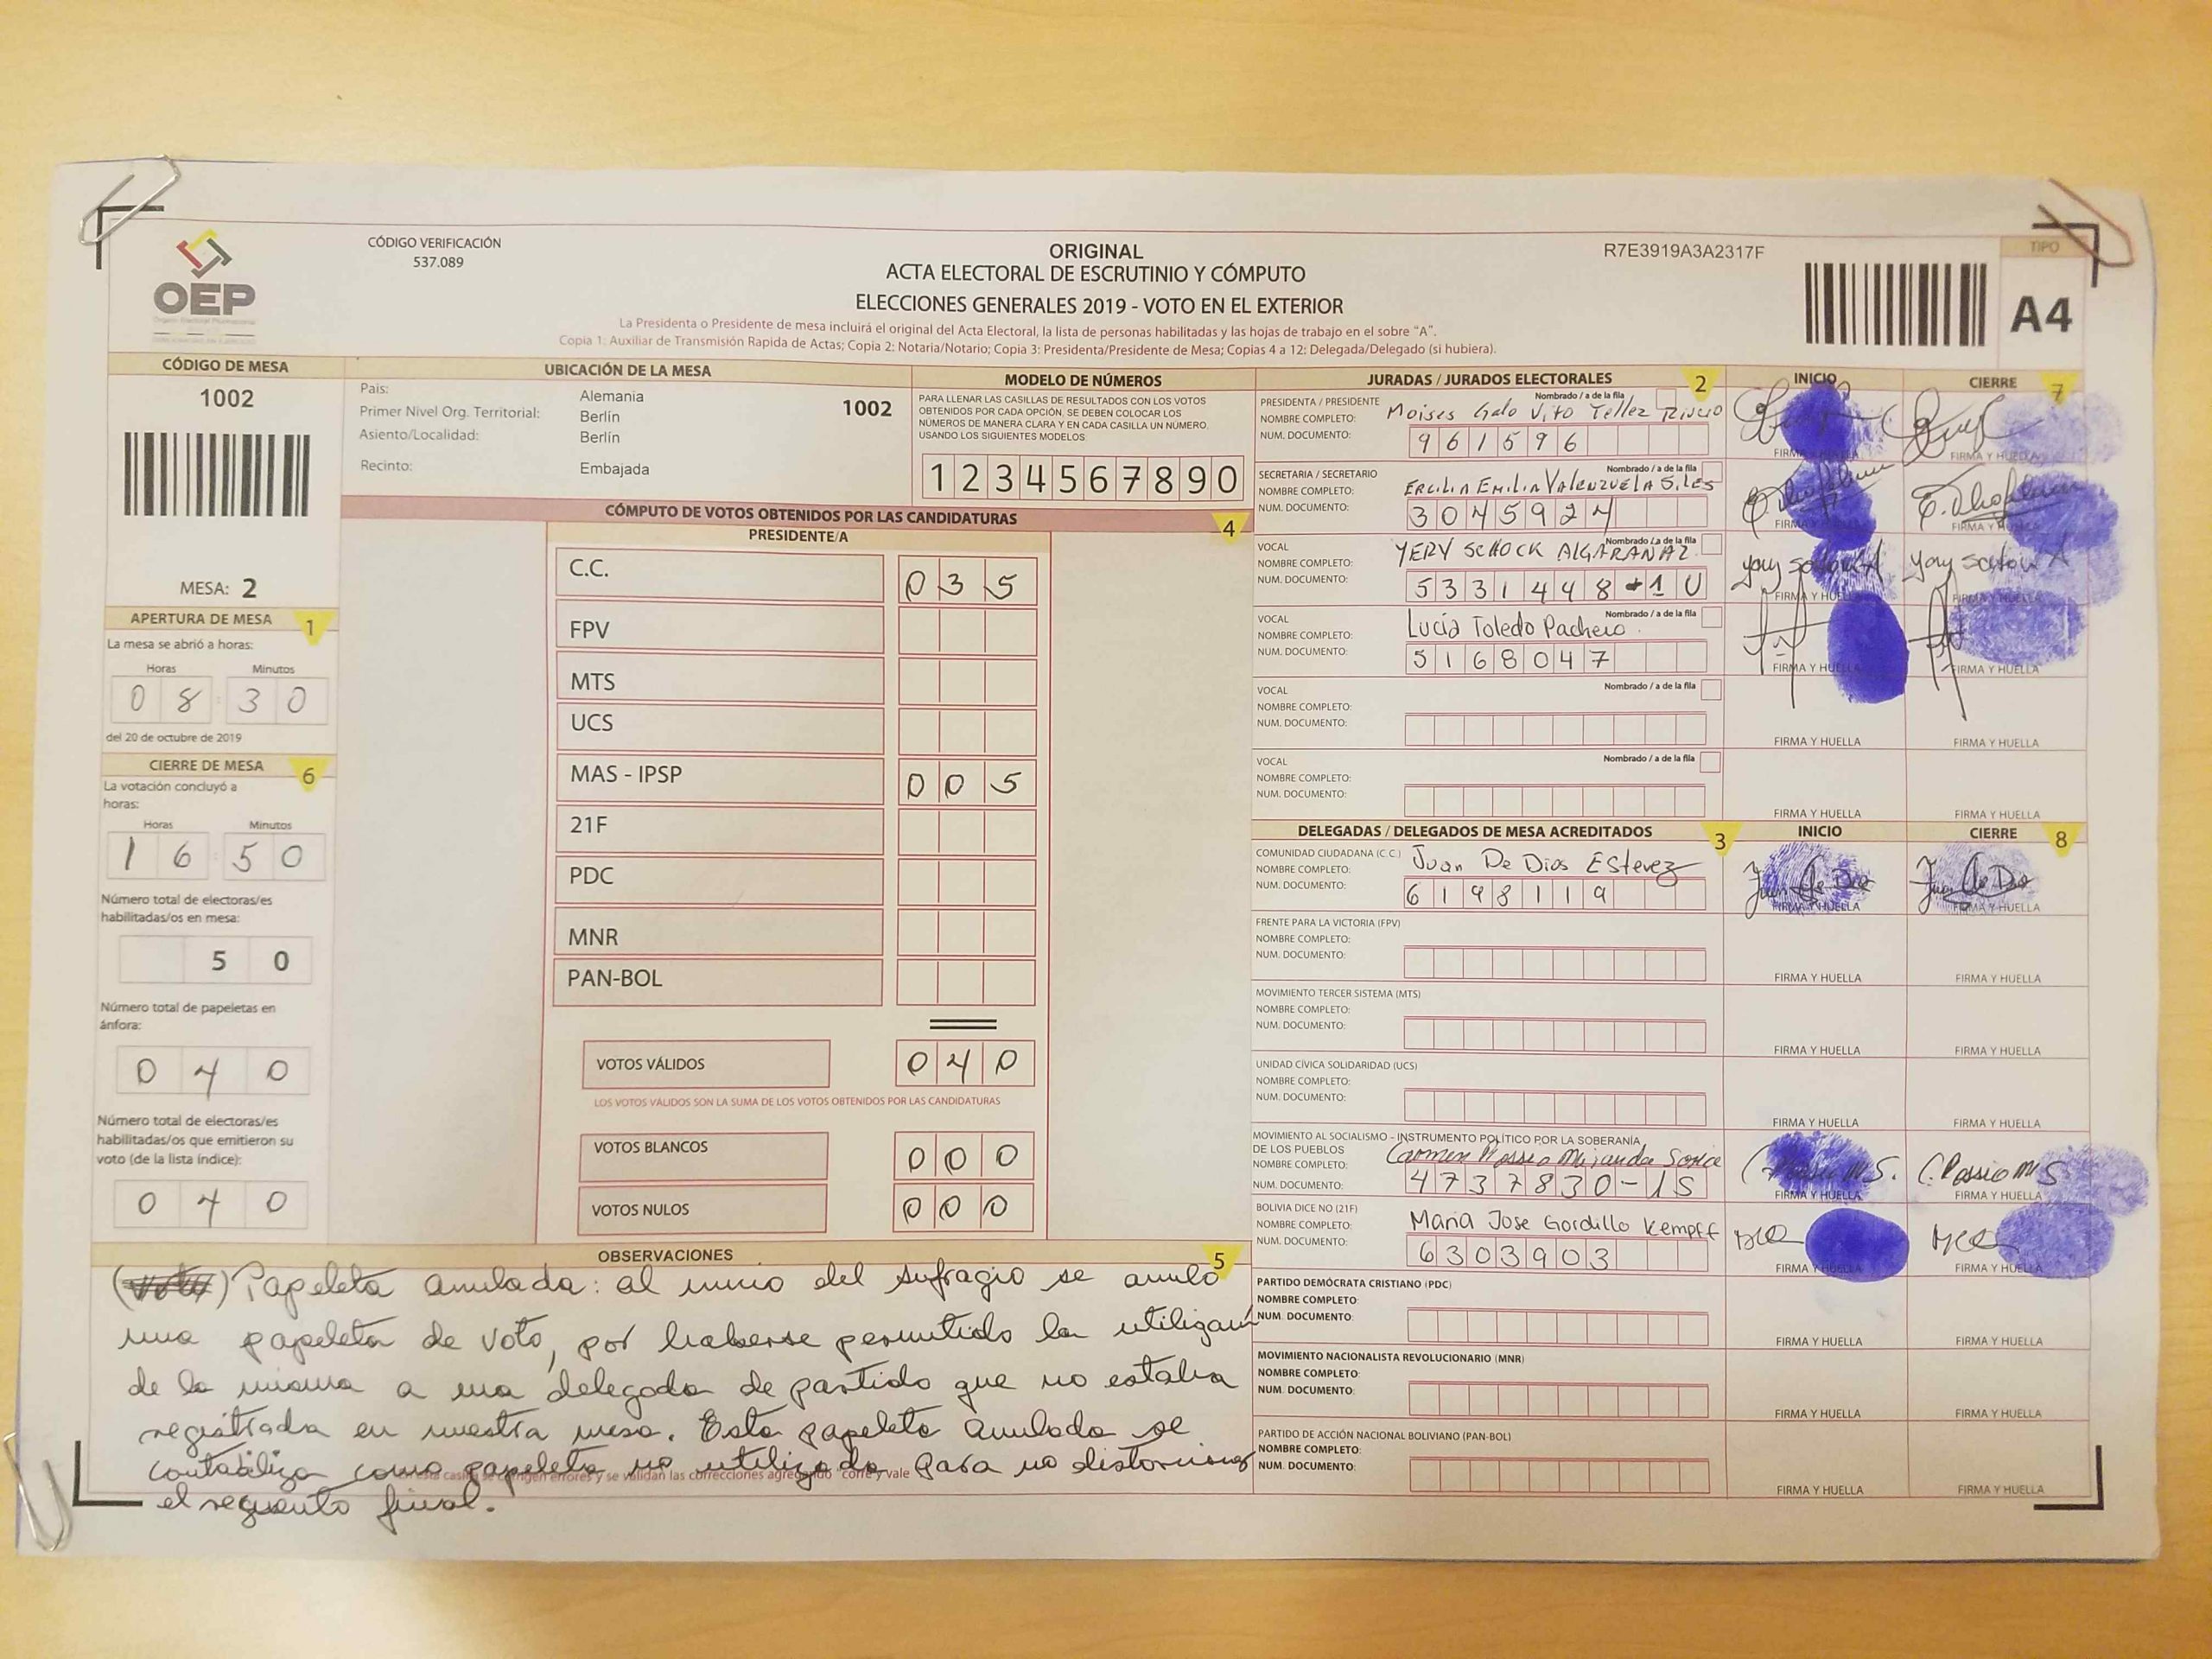 OEP
CÓDIGO VERIFICACIÓN
537.089
ORIGINAL
ACTA ELECTORAL DE ESCRUTINIO Y CÓMPUTO
ELECCIONES GENERALES 2019 - VOTO EN EL EXTERIOR
La Presidenta o Presidente de mesa incluirá el original del Acta Electoral, la lista de personas habilitadas y las hojas de trabajo en el sobre "A".
Copia 1: Auxiliar de Transmisión Rapida de Actas; Copia 2: Notaria/Notario; Copia 3: Presidenta/Presidente de Mesa; Copias 4 a 12: Delegada/Delegado (si hubiera).
R7E3919A3A2317F
TIPO
A4
CÓDIGO DE MESA
1002
MESA: 2
APERTURA DE MESA 1
La mesa se abrió a horas:
Horas Minutos
08 : 30
del 20 de octubre de 2019
CIERRE DE MESA 6
La votación concluyó a
horas:
Horas Minutos
16 : 50
Número total de electoras/es
habilitadas/os en mesa:
50
Número total de papeletas en
ánfora:
040
Número total de electoras/es
habilitadas/os que emitieron su
voto (de la lista índice):
040
UBICACIÓN DE LA MESA
País: Alemania 1002
Primer Nivel Org. Territorial: Berlín
Asiento/Localidad: Berlín
Recinto: Embajada
MODELO DE NÚMEROS
PARA LLENAR LAS CASILLAS DE RESULTADOS CON LOS VOTOS
OBTENIDOS POR CADA OPCIÓN, SE DEBEN COLOCAR LOS
NÚMEROS DE MANERA CLARA Y EN CADA CASILLA UN NÚMERO,
USANDO LOS SIGUIENTES MODELOS:
1 2 3 4 5 6 7 8 9 0
CÓMPUTO DE VOTOS OBTENIDOS POR LAS CANDIDATURAS 4
PRESIDENTE/A
C.C. 035
FPV
MTS
UCS
MAS - IPSP 005
21F
PDC
MNR
PAN-BOL
VOTOS VÁLIDOS 040
LOS VOTOS VÁLIDOS SON LA SUMA DE LOS VOTOS OBTENIDOS POR LAS CANDIDATURAS
VOTOS BLANCOS 000
VOTOS NULOS 000
OBSERVACIONES 5
Papeleta anulada: al inicio del sufragio se anuló
una papeleta de voto, por haberse permitido la
de la misma a una delegada de partido que no estaba
registrada en nuestra mesa. Esta papeleta anulada se
contabiliza como papeleta no utilizada para no distorsionar
el final.
JURADAS / JURADOS ELECTORALES 2 INICIO CIERRE 7
PRESIDENTA / PRESIDENTE Nombrado / a de la fila
NOMBRE COMPLETO: Moises Galo Vito Tellez
NUM. DOCUMENTO: 961596
FIRMA Y HUELLA FIRMA Y HUELLA
SECRETARIA / SECRETARIO Nombrado / a de la fila
NOMBRE COMPLETO: Ercilia Emilia Valenzuela Siles
NUM. DOCUMENTO: 3045924
FIRMA Y HUELLA FIRMA Y HUELLA
VOCAL Nombrado / a de la fila
NOMBRE COMPLETO: YERY SCHOCK ALGARAÑAZ
NUM. DOCUMENTO: 5331448-1U
FIRMA Y HUELLA FIRMA Y HUELLA
VOCAL Nombrado / a de la fila
NOMBRE COMPLETO: Lucía Toledo Pacheco
NUM. DOCUMENTO: 5168047
FIRMA Y HUELLA FIRMA Y HUELLA
VOCAL Nombrado / a de la fila
NOMBRE COMPLETO:
NUM. DOCUMENTO:
FIRMA Y HUELLA FIRMA Y HUELLA
VOCAL Nombrado / a de la fila
NOMBRE COMPLETO:
NUM. DOCUMENTO:
FIRMA Y HUELLA FIRMA Y HUELLA
DELEGADAS / DELEGADOS DE MESA ACREDITADOS 3 INICIO CIERRE 8
COMUNIDAD CIUDADANA (C.C.)
NOMBRE COMPLETO: Juan De Dios Estevez
NUM. DOCUMENTO: 6198119
FIRMA Y HUELLA FIRMA Y HUELLA
FRENTE PARA LA VICTORIA (FPV)
NOMBRE COMPLETO:
NUM. DOCUMENTO:
FIRMA Y HUELLA FIRMA Y HUELLA
MOVIMIENTO TERCER SISTEMA (MTS)
NOMBRE COMPLETO:
NUM. DOCUMENTO:
FIRMA Y HUELLA FIRMA Y HUELLA
UNIDAD CÍVICA SOLIDARIDAD (UCS)
NOMBRE COMPLETO:
NUM. DOCUMENTO:
FIRMA Y HUELLA FIRMA Y HUELLA
MOVIMIENTO AL SOCIALISMO - INSTRUMENTO POLÍTICO POR LA SOBERANÍA
DE LOS PUEBLOS
NOMBRE COMPLETO: Carmen Rossio Miranda
NUM. DOCUMENTO: 4737830-1S
FIRMA Y HUELLA FIRMA Y HUELLA
BOLIVIA DICE NO (21F)
NOMBRE COMPLETO: Maria Jose Gordillo Kempff
NUM. DOCUMENTO: 6303903
FIRMA Y HUELLA FIRMA Y HUELLA
PARTIDO DEMÓCRATA CRISTIANO (PDC)
NOMBRE COMPLETO:
NUM. DOCUMENTO:
FIRMA Y HUELLA FIRMA Y HUELLA
MOVIMIENTO NACIONALISTA REVOLUCIONARIO (MNR)
NOMBRE COMPLETO:
NUM. DOCUMENTO:
FIRMA Y HUELLA FIRMA Y HUELLA
PARTIDO DE ACCIÓN NACIONAL BOLIVIANO (PAN-BOL)
NOMBRE COMPLETO:
NUM. DOCUMENTO:
FIRMA Y HUELLA FIRMA Y HUELLA